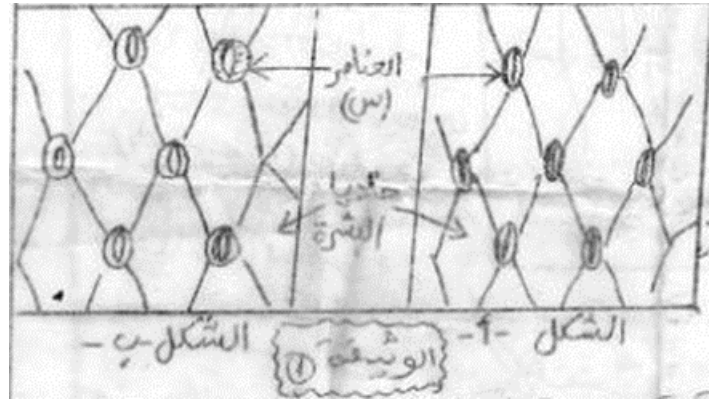 العناصر
(س)
خلايا
البشرة
الشكل -أ-
الشكل -ب-
الوثيقة 1